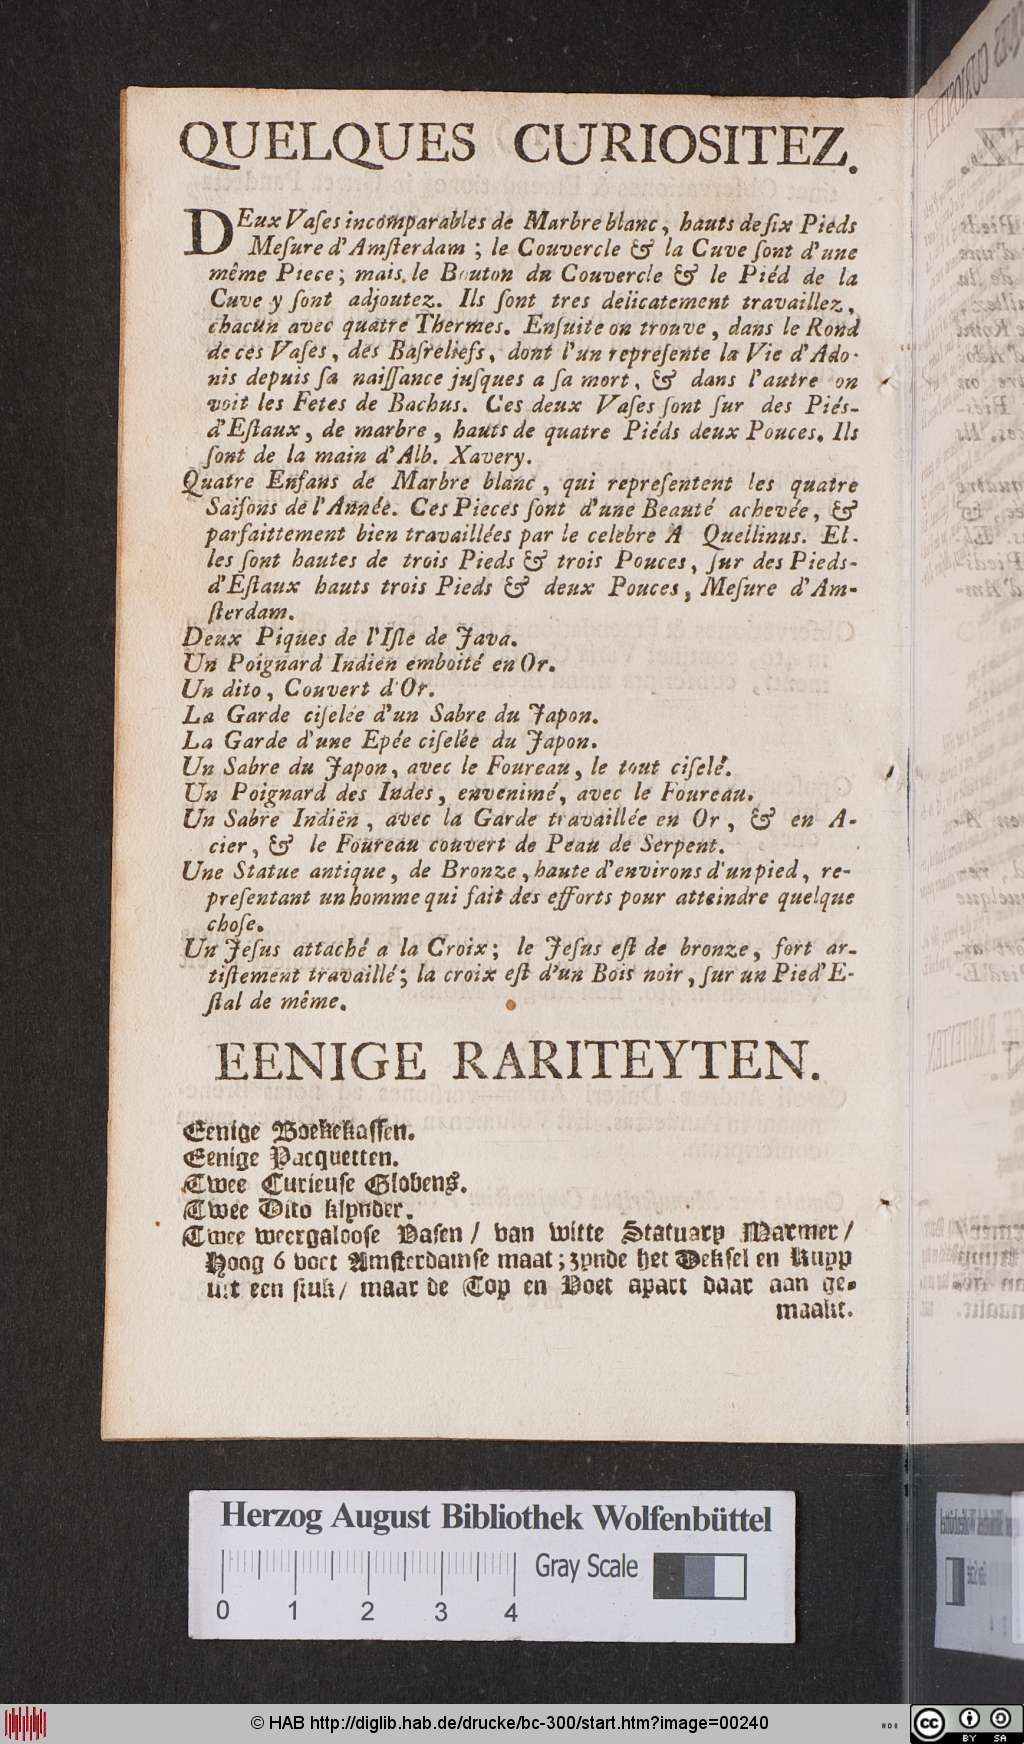 QUELQUES CURIOSITEZ.
DEux Vaſes incomparables de Marbre blanc, hauts de ſix Pieds
Meſure d'Amſterdam ; le Couvercle & la Cuve ſont d'une
même Piece; mais le Bouton du Couvercle & le Piéd de la
Cuve y ſont adjoutez. Ils ſont tres delicatement travaillez,
chacun avec quatre Thermes. Enſuite on trouve, dans le Rond
de ces Vaſes, des Baſreliefs, dont l'un repreſente la Vie d'Ado-
nis depuis ſa naiſſance juſques a ſa mort, & dans l'autre on
voit les Fetes de Bachus. Ces deux Vaſes ſont ſur des Piés-
d'Eſtaux, de marbre, hauts de quatre Piéds deux Pouces. Ils
ſont de la main d'Alb. Xavery.
Quatre Enfans de Marbre blanc, qui repreſentent les quatre
Saiſons de l'Année. Ces Pieces ſont d'une Beauté achevée, &
parfaittement bien travaillées par le celebre A Quellinus. El-
les ſont hautes de trois Pieds & trois Pouces, ſur des Pieds-
d'Eſtaux hauts trois Pieds & deux Pouces, Meſure d'Am-
ſterdam.
Deux Piques de l'Iſle de Java.
Un Poignard Indien emboité en Or.
Un dito, Couvert d'Or.
La Garde ciſelée d'un Sabre du Japon.
La Garde d'une Epée ciſelée du Japon.
Un Sabre du Japon, avec le Foureau, le tout ciſelé.
Un Poignard des Indes, envenimé, avec le Foureau.
Un Sabre Indiën, avec la Garde travaillée en Or, & en A-
cier, & le Foureau couvert de Peau de Serpent.
Une Statue antique, de Bronze, haute d'environs d'un pied, re-
preſentant un homme qui fait des efforts pour atteindre quelque
choſe.
Un Jeſus attaché a la Croix; le Jeſus eſt de bronze, fort ar-
tiſtement travaillé; la croix eſt d'un Bois noir, ſur un Pied'E-
ſtal de même.
EENIGE RARITEYTEN.
Eenige Boekekaſſen.
Eenige Pacquetten.
Twee Curieuſe Globens.
Twee Dito klynder.
Twee weergalooſe Vaſen / van witte Statuary Marmer /
Hoog 6 voet Amſterdamſe maat; zynde het Dekſel en Kupp
uit een ſtuk / maar de Top en Voet apart daar aan ge-
maakt.
Herzog August Bibliothek Wolfenbüttel
Gray Scale
0 1 2 3 4
© HAB http://diglib.hab.de/drucke/bc-300/start.htm?image=00240
cc BY SA